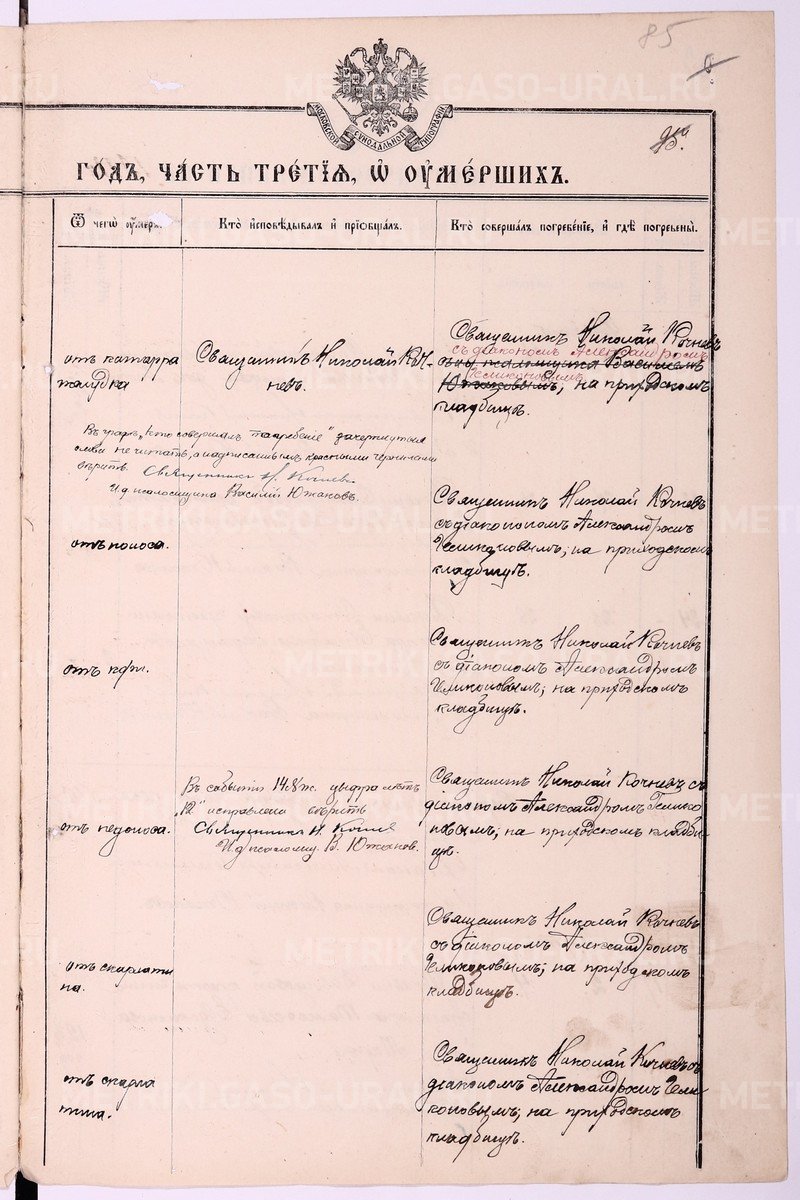 85
МОСКОВСКОЙ СѴНОДАЛЬНОЙ ТИПОГРАФІИ
ГОДЪ, ЧАСТЬ ТРЕТІЯ, Ѡ ОУМЕРШИХЪ.
Ѿ чегѡ оумеръ.
Кто исповѣдывалъ и пріобщалъ.
Кто совершалъ погребеніе, и гдѣ погребены.
отъ катарра
желудка
Священникъ Николай Коч-
невъ.
Священникъ Николай Кочневъ
съ діакономъ Александромъ
и д. псаломщика Василіемъ
Южаковымъ, на приходскомъ
кладбищѣ.
Въ графѣ „кто совершалъ погребеніе" зачеркнутыя
слова не читать, а надписаннымъ красными чернилами
вѣрить. Священникъ Н. Кочневъ
И д псаломщика Василій Южаковъ.
отъ поноса.
Священникъ Николай Кочневъ
съ діакономъ Александромъ
на приходскомъ
кладбищѣ.
отъ
Священникъ Николай Кочневъ
съ діакономъ Александромъ
на приходскомъ
кладбищѣ.
Въ событіи 14 № ж. цыфра лѣтъ
„12" исправлена вѣрить
Священникъ Н. Кочневъ
И д псаломщ. В. Южаковъ.
отъ недоноса.
Священникъ Николай Кочневъ съ
діакономъ Александромъ
на приходскомъ кладби-
щѣ.
отъ скарлати
на.
Священникъ Николай Кочневъ
съ діакономъ Александромъ
на приходскомъ
кладбищѣ.
отъ скарла
тина.
Священникъ Николай Кочневъ съ
діакономъ Александромъ
на приходскомъ
кладбищѣ.
METRIKI.GASO-URAL.RU